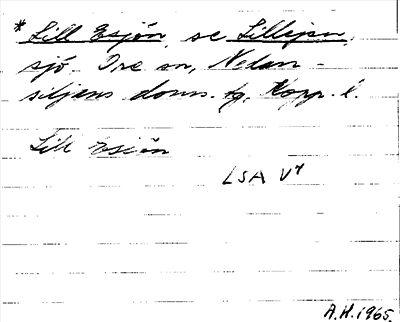 * Lill Esjön, se Lillejen,
sjö. Ore sn, Nedan-
siljens doms. tg, Kopp. l.
Lill Esjön
LSA V7
A.H. 1965.